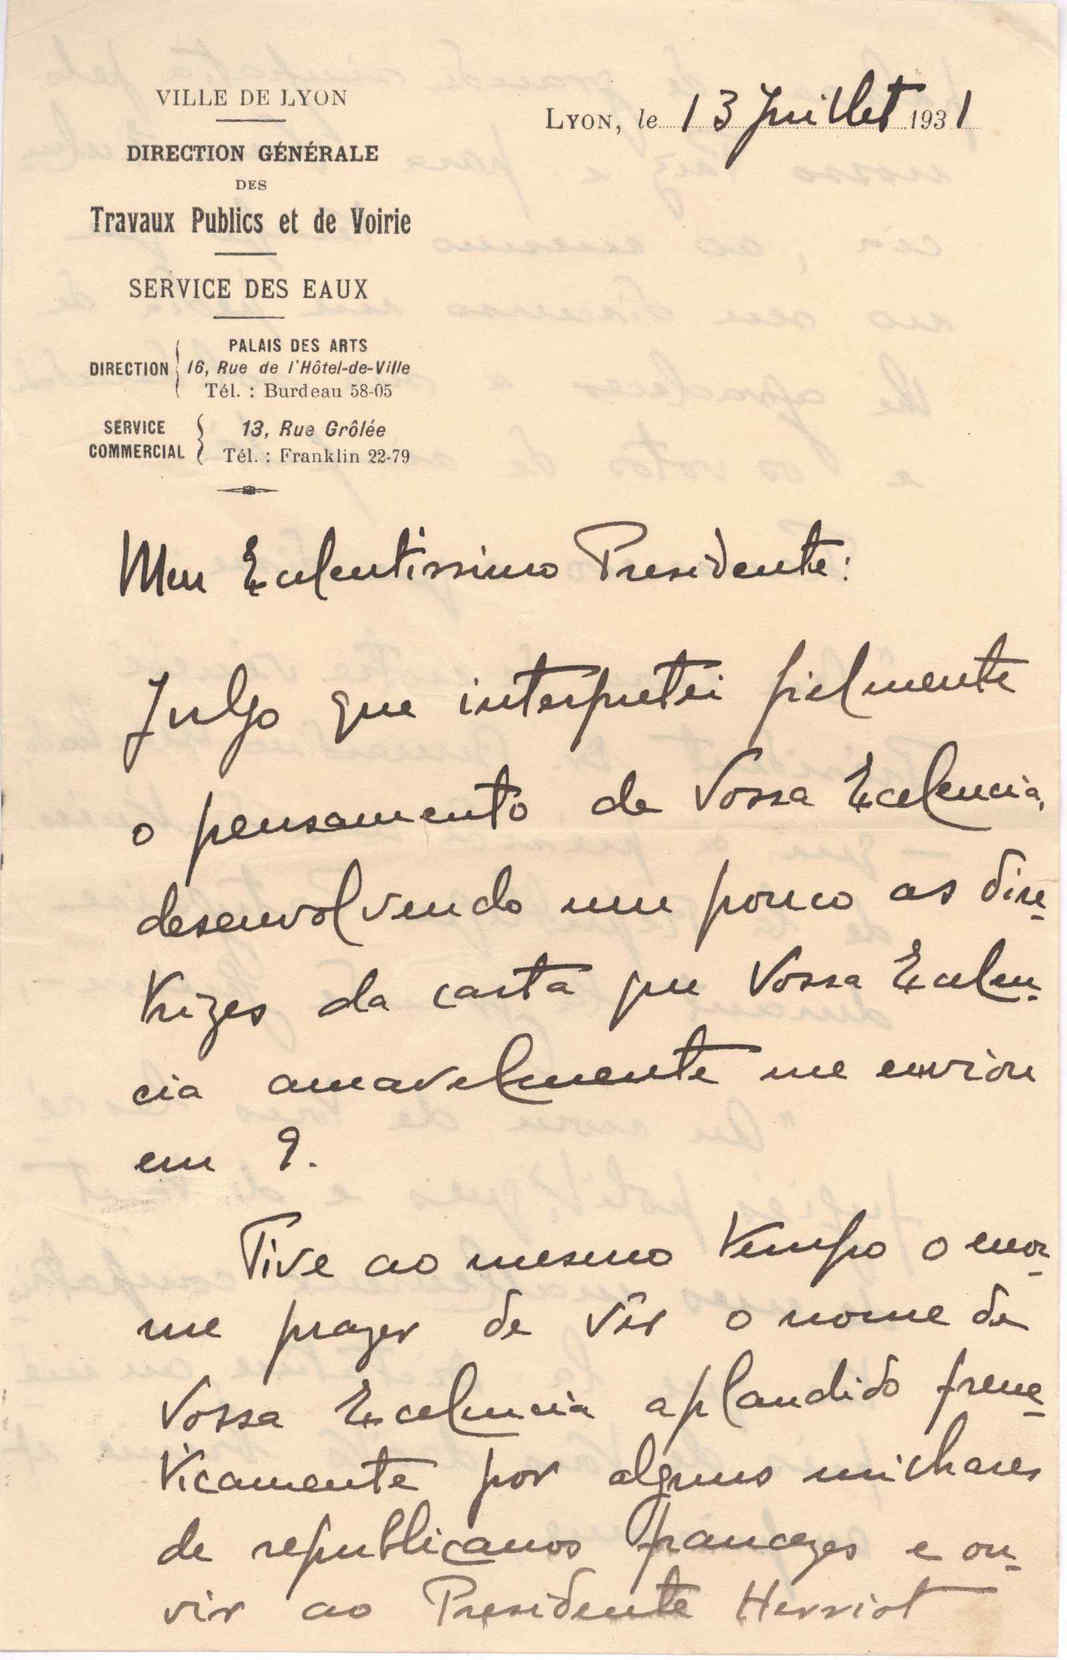 VILLE DE LYON
DIRECTION GÉNÉRALE
DES
Travaux Publics et de Voirie
SERVICE DES EAUX
DIRECTION { PALAIS DES ARTS
16, Rue de l'Hôtel-de-Ville
Tél. : Burdeau 58-05
SERVICE COMMERCIAL { 13, Rue Grôlée
Tél. : Franklin 22-79
LYON, le 13 Juillet 1931
Meu Excelentissimo Presidente:
Julgo que interpretei fielmente
o pensamento de Vossa Excelencia,
desenvolvendo um pouco as dire-
trizes da carta que Vossa Excelen-
cia amavelmente me enviou
em 9.
Tive ao mesmo tempo o enor-
me prazer de vêr o nome de
Vossa Excelencia aplaudido frene-
ticamente por alguns milhares
de republicanos francezes e ou-
vir ao Presidente Herriot